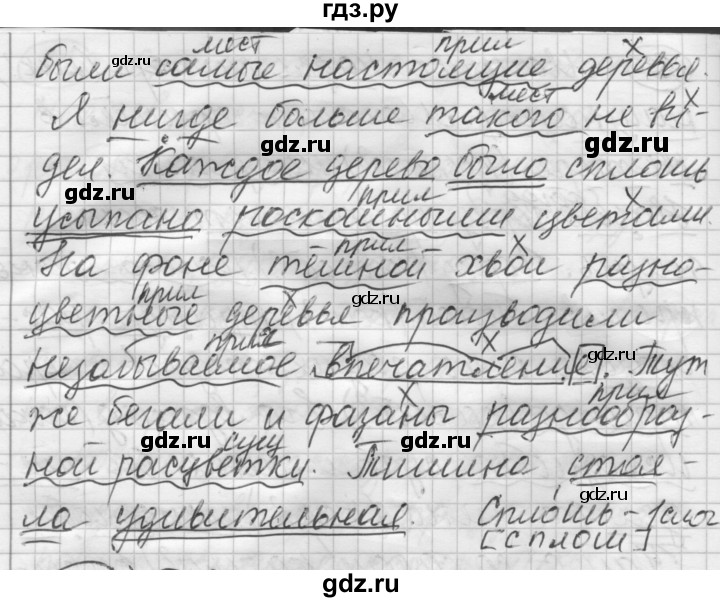 гдз.ру
мест прил
были самые настоящие деревья.
мест
Я нигде больше такого не ви-
gdz.ru gdz.ru
дел. Каждое дерево было сплошь
gdz.ru прил
усыпано роскошными цветами.
прил
На фоне тёмной хвои разно-
прил gdz.ru
цветные деревья производили
прил
незабываемое впечатление. Тут
gdz.ru прил
же бегали и фазаны разнообраз-
gdz.ru сущ gdz.ru
ной расцветки. Тишина стоя-
gdz.ru
ла удивительная. Сплошь - 1 слог
[сплош]
gdz.ru gdz.ru
gdz.ru